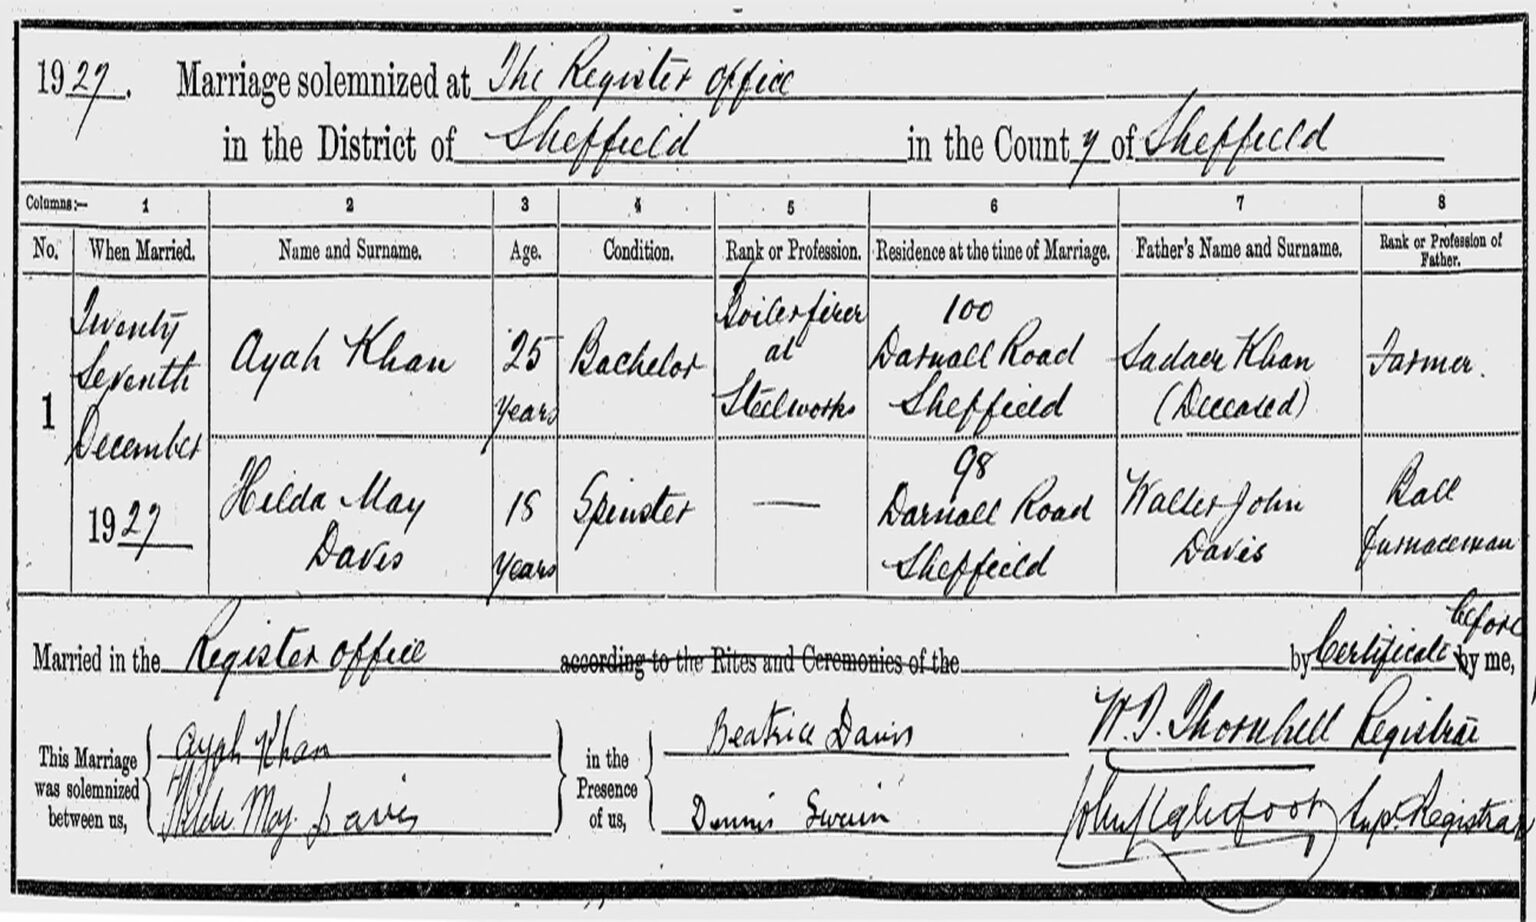 1927. Marriage solemnized at The Register office
in the District of Sheffield in the County of Sheffield
Columns:— 1 2 3 4 5 6 7 8
No. When Married. Name and Surname. Age. Condition. Rank or Profession. Residence at the time of Marriage. Father's Name and Surname. Rank or Profession of Father.
1
Twenty
Seventh
December
1927
Ayah Khan
25
years
Bachelor
Boilerfirer
at
Steelworks
100
Darnall Road
Sheffield
Sadaer Khan
(Deceased)
Farmer.
Hilda May
Davis
18
years
Spinster
—
98
Darnall Road
Sheffield
Walter John
Davis
Ball
furnaceman
Married in the Register office according to the Rites and Ceremonies of the by Certificate before by me,
This Marriage
was solemnized
between us,
Ayah Khan
Hilda May Davis
in the
Presence
of us,
Beatrice Davis
Dennis Swain
W. T. Thornhill Registrar
Supt. Registrar